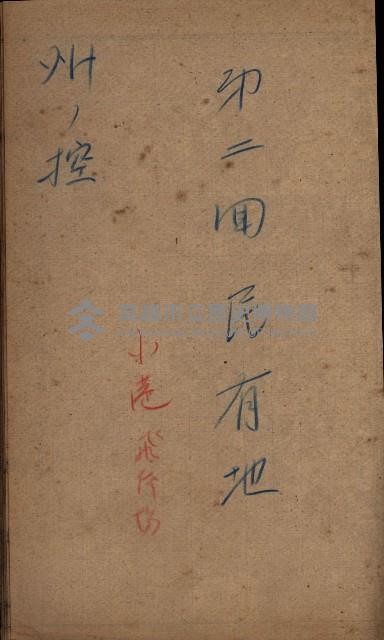 第二回民有地
小港飛行场
州ノ控
高雄市立歷史博物館